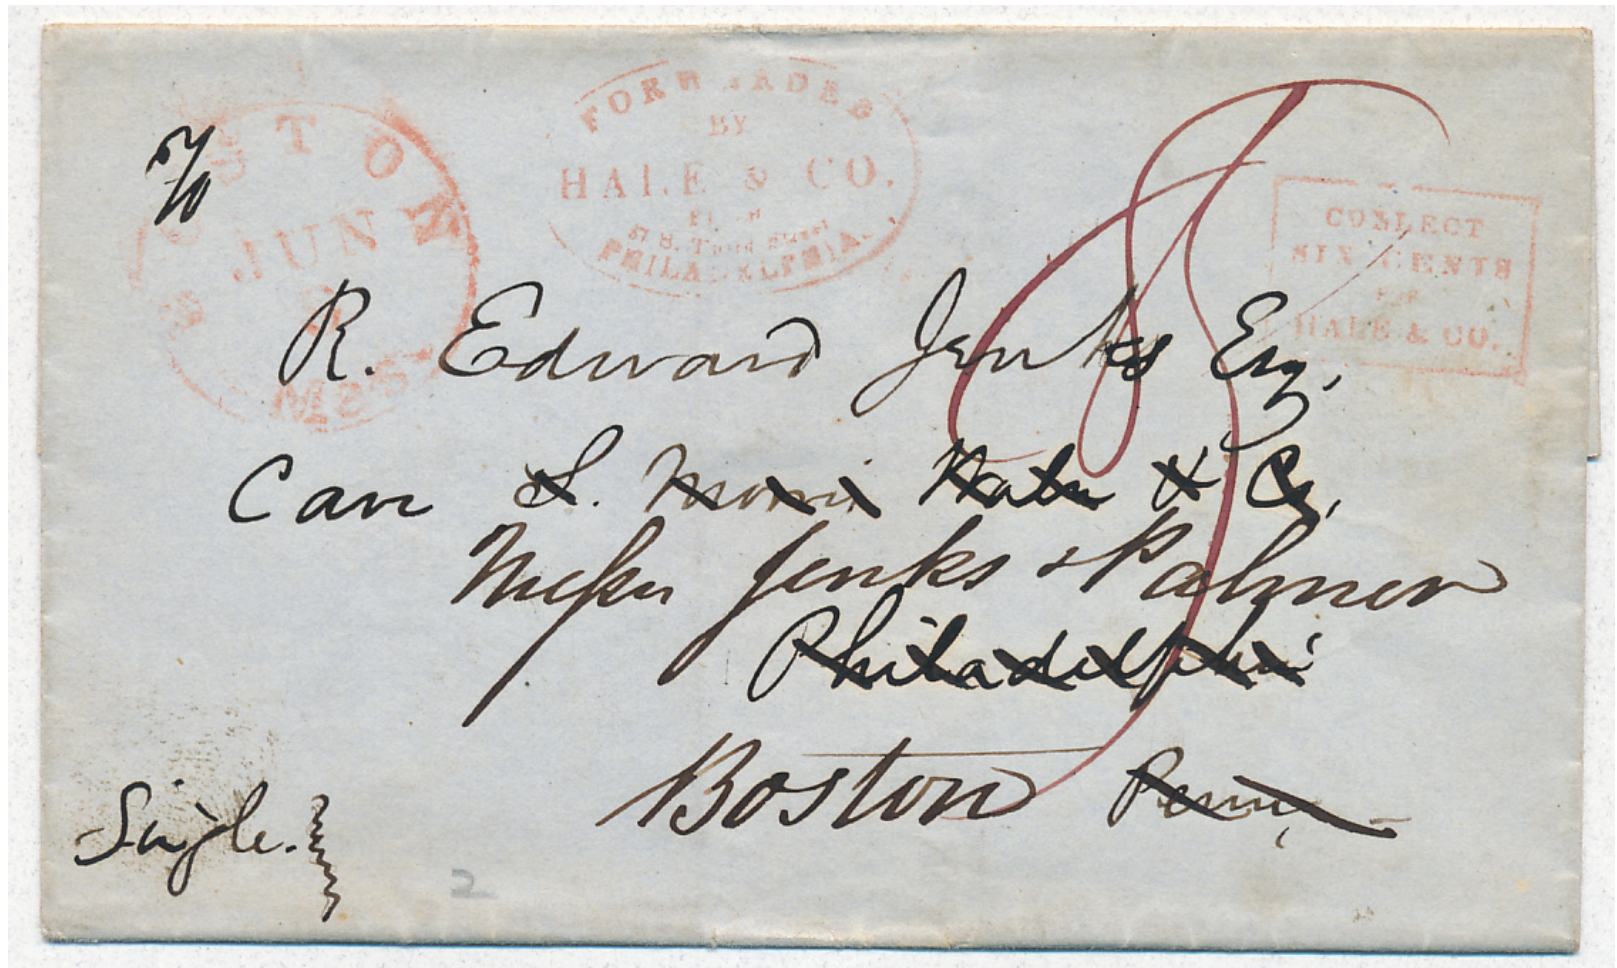 BOSTON
JUN
MASS
FORWARDED
BY
HALE & CO.
FROM
57 S. Third Street
PHILADELPHIA.
COLLECT
SIX CENTS
FOR
HALE & CO.
R. Edward Jenks Esq.
Care S. Morris & Co,
Messrs Jenks & Palmer
Philadelphia
Boston Penn,
Single.
2